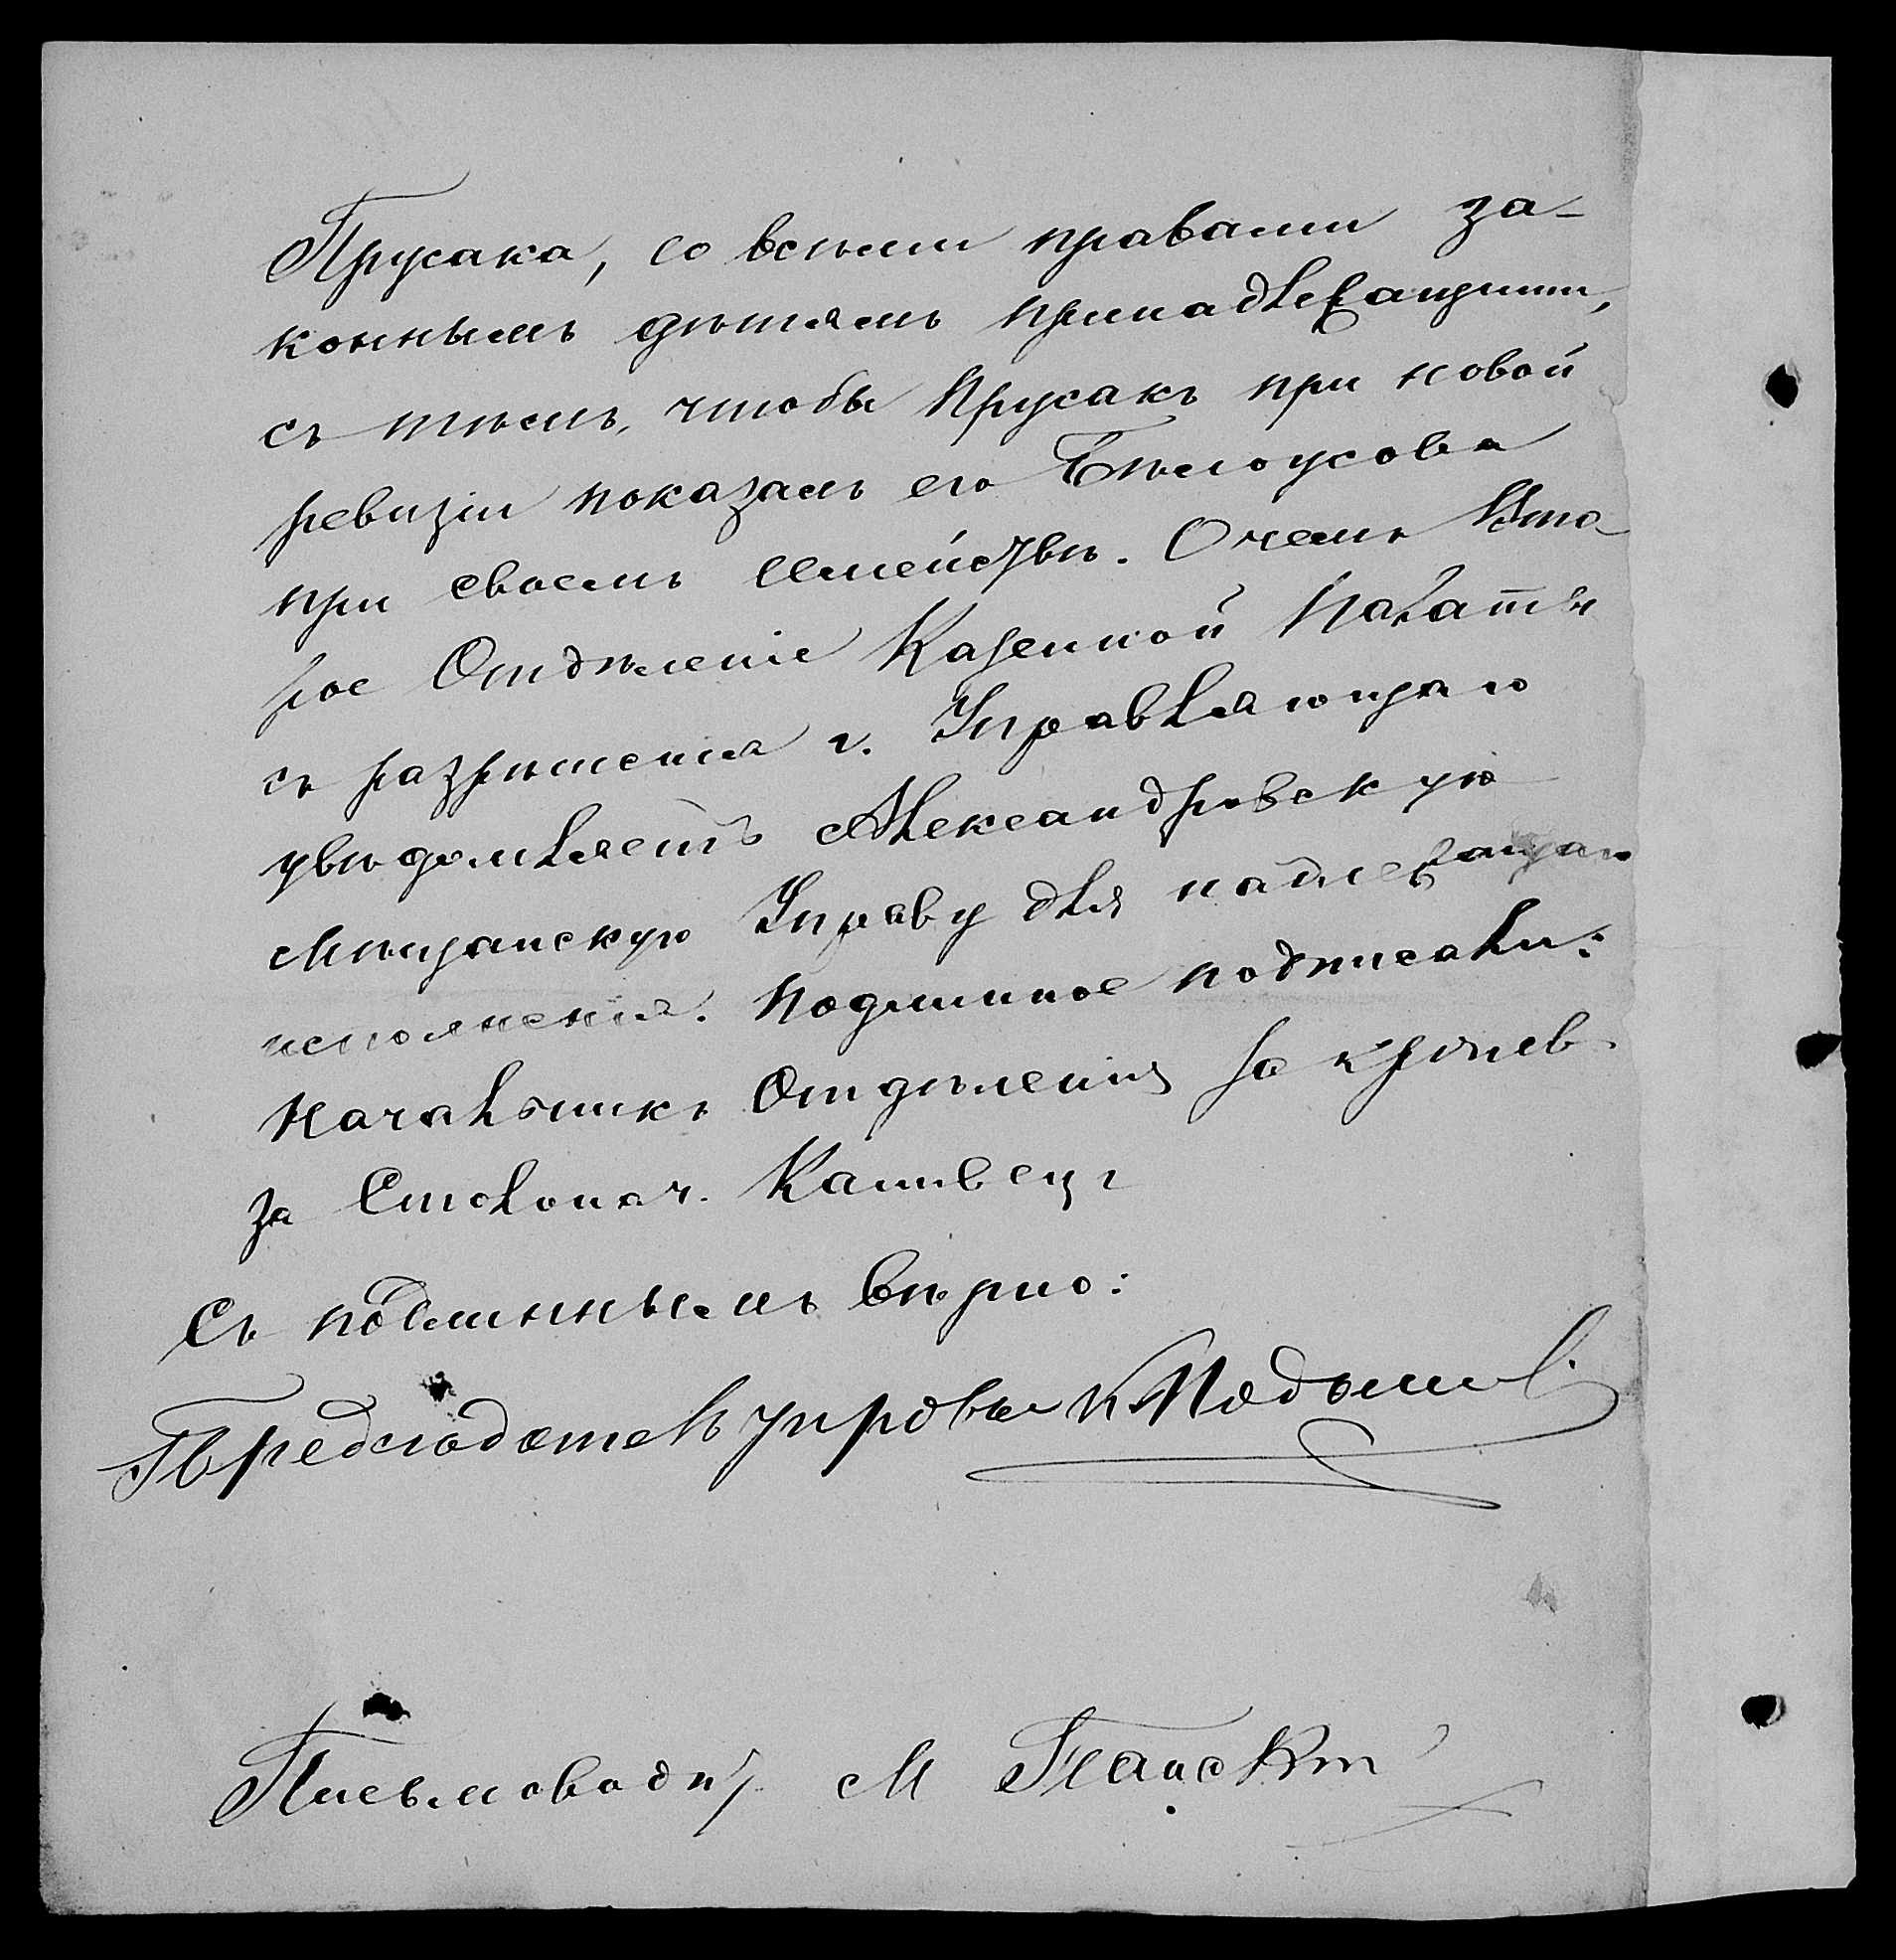 Прусака, со всѣми правами за-
коннымъ дѣтямъ принадлежащими,
съ тѣмъ, чтобы Прусакъ при новой
ревизіи показалъ его Бѣлоусова
при своемъ семействѣ. О чемъ Вто
рое Отдѣленіе Казенной Палаты
съ разрѣшенія г. Управляющаго
увѣдомляетъ Александровскую
Мѣщанскую Управу для надлежащаго
исполненія. Подлинное подписали:
Начальникъ Отдѣленія
за Столонач.
Съ подлиннымъ вѣрно:
Предсѣдатель управы
Письмовод. М